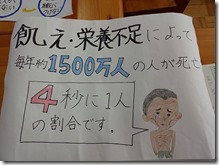 飢え・栄養不足によって
毎年約1500万人の人が死亡
4秒に1人
の割合です。